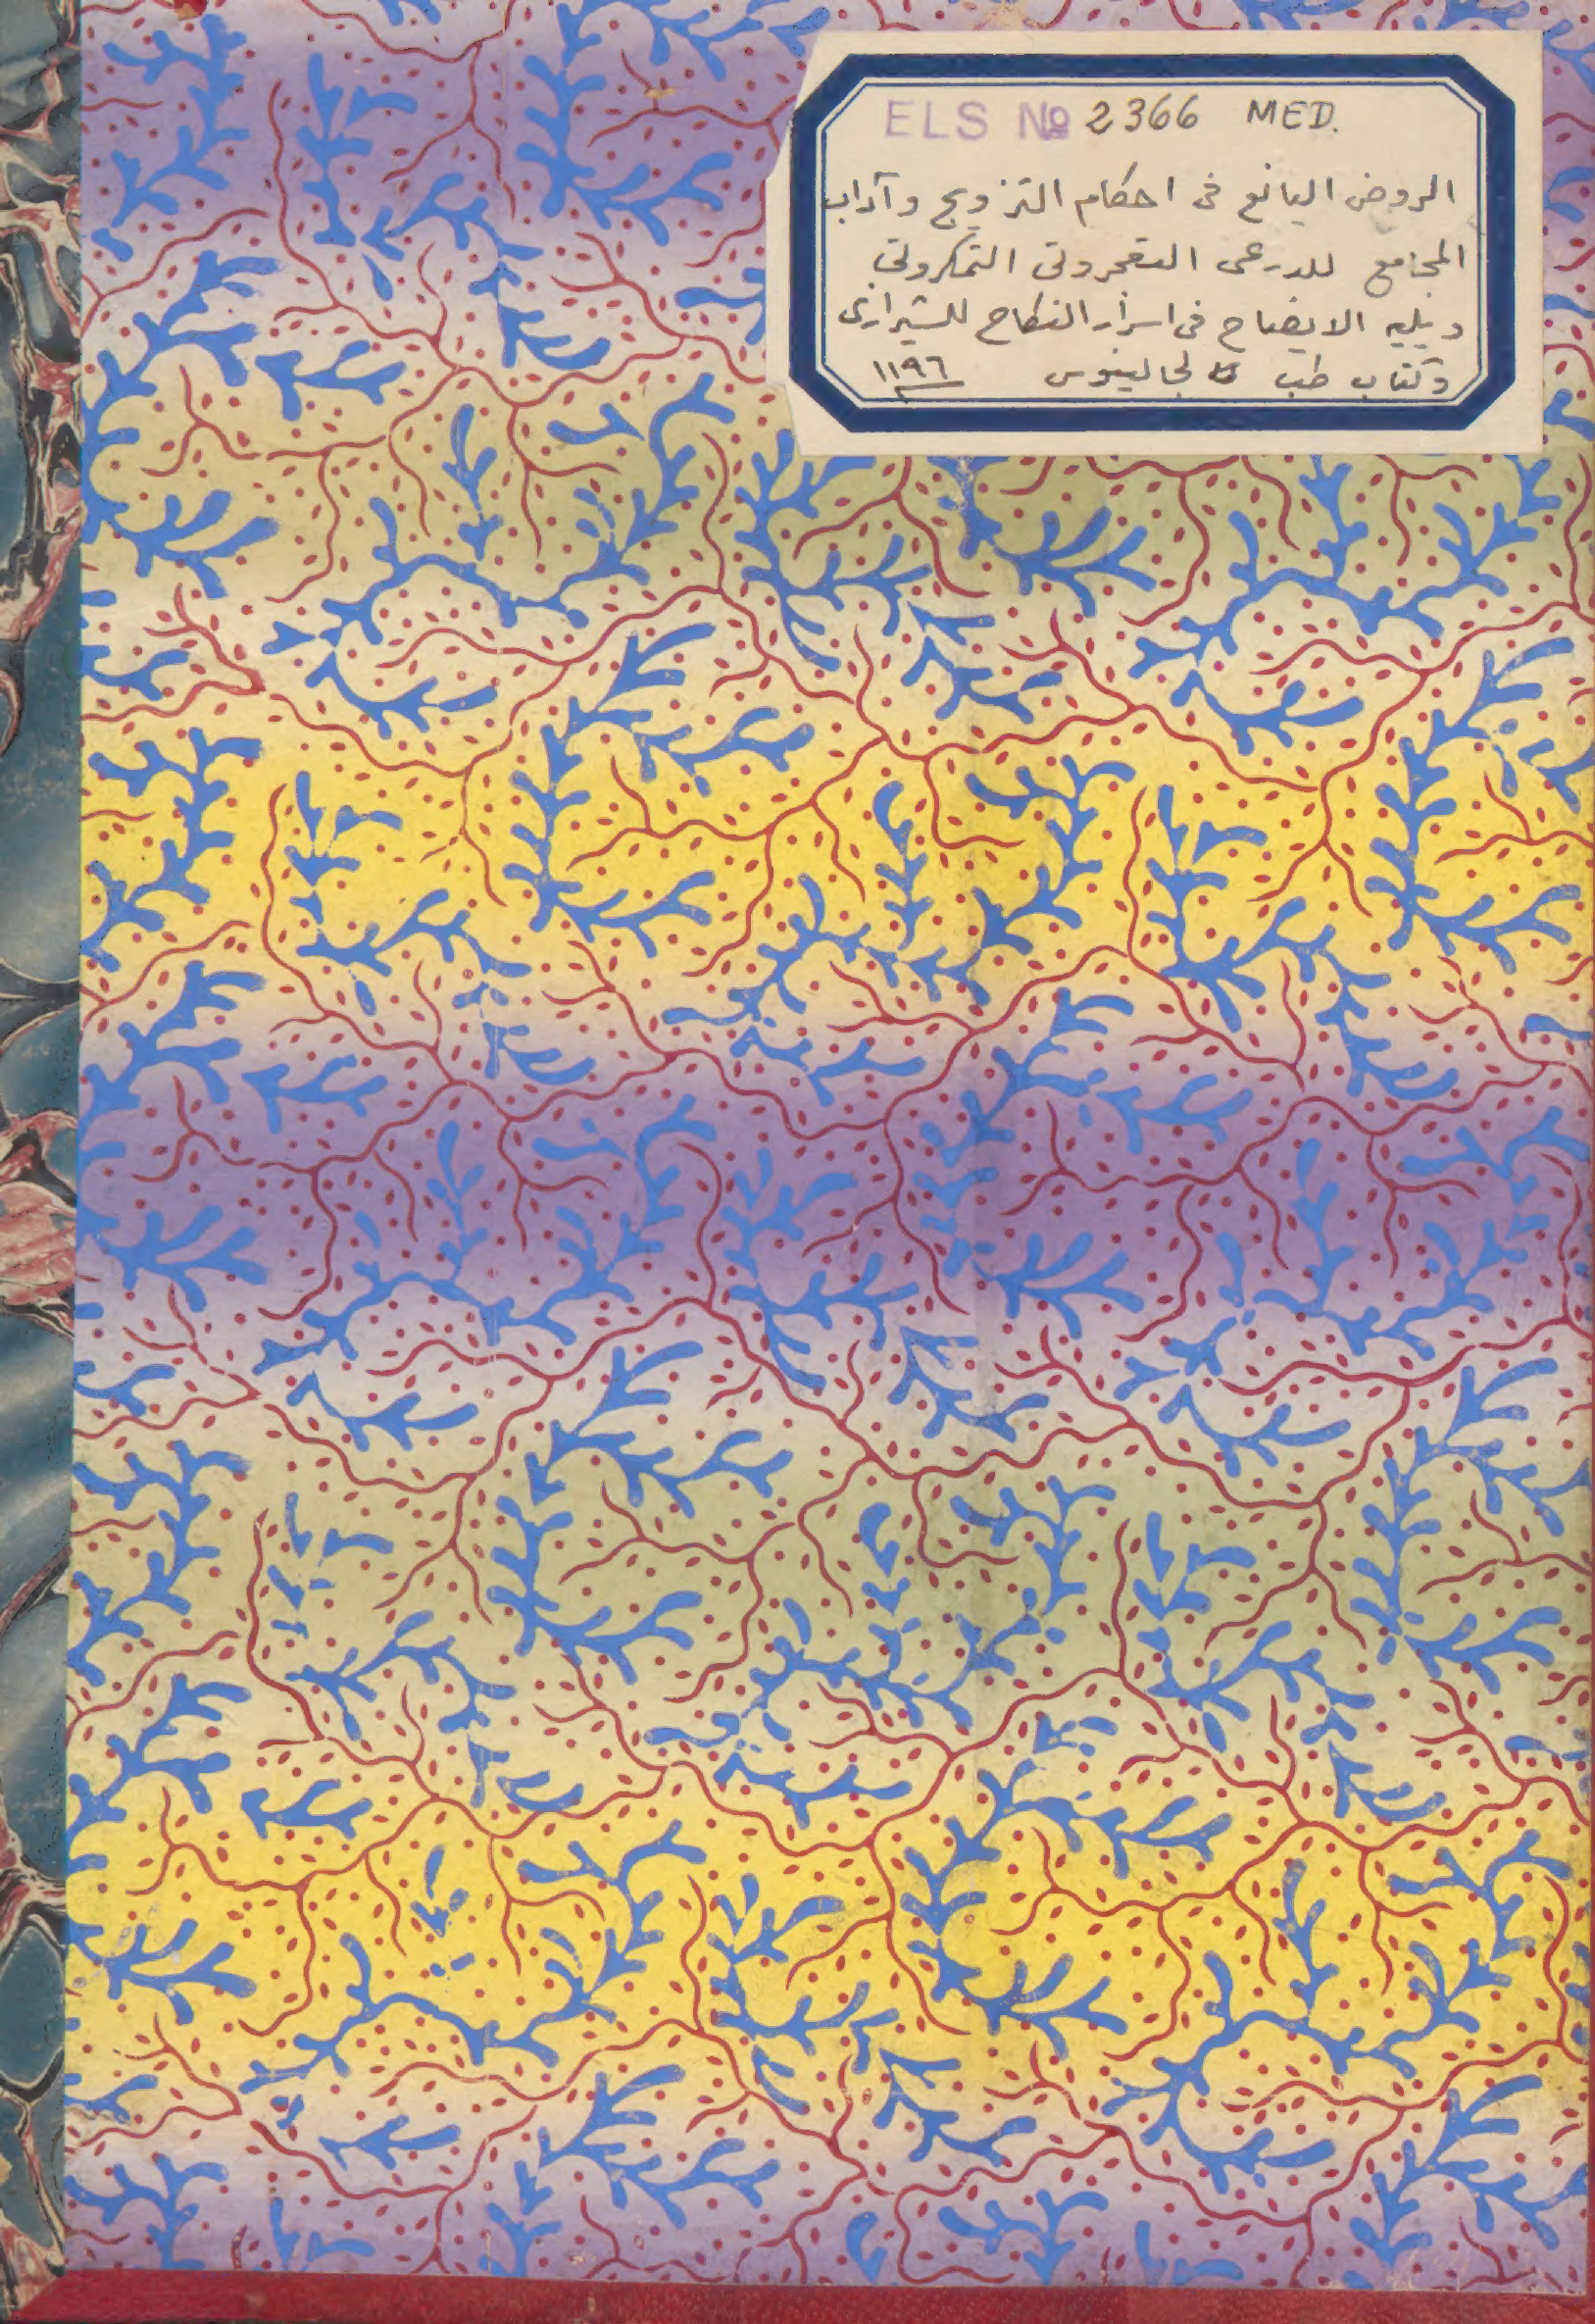 ELS No 2366 MED.
الروض اليانع فى احكام التزويج وآداب
المجامع للدرعى التفجروتى التمكروتى
ويليه الايضاح فى اسرار النكاح للشيرازى
وكتاب طب لجالينوس ١١٩٦